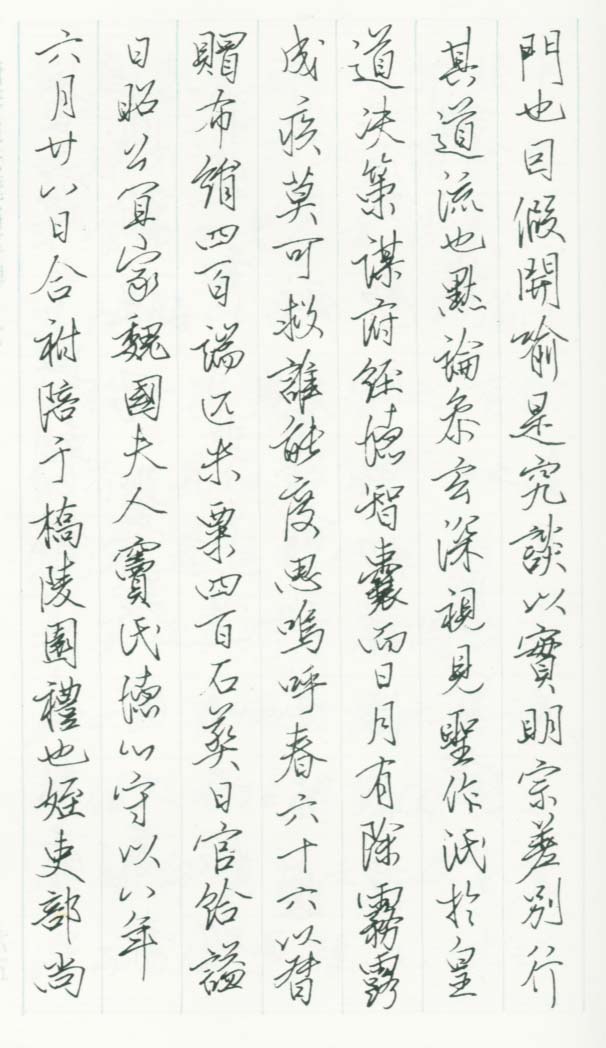 門也回假開喻是究談以實明宗差別行
其道流也默論叅玄深視見聖作泯於皇
道决策謀府經德智囊而日月有除霧露
成疾莫可救誰能度思嗚呼春六十六以替
賵布絹四百端匹米粟四百石葬日官給諡
日昭公宜家魏國夫人竇氏德心守以八年
六月廿八日合祔陪于橋陵園禮也姪吏部尚